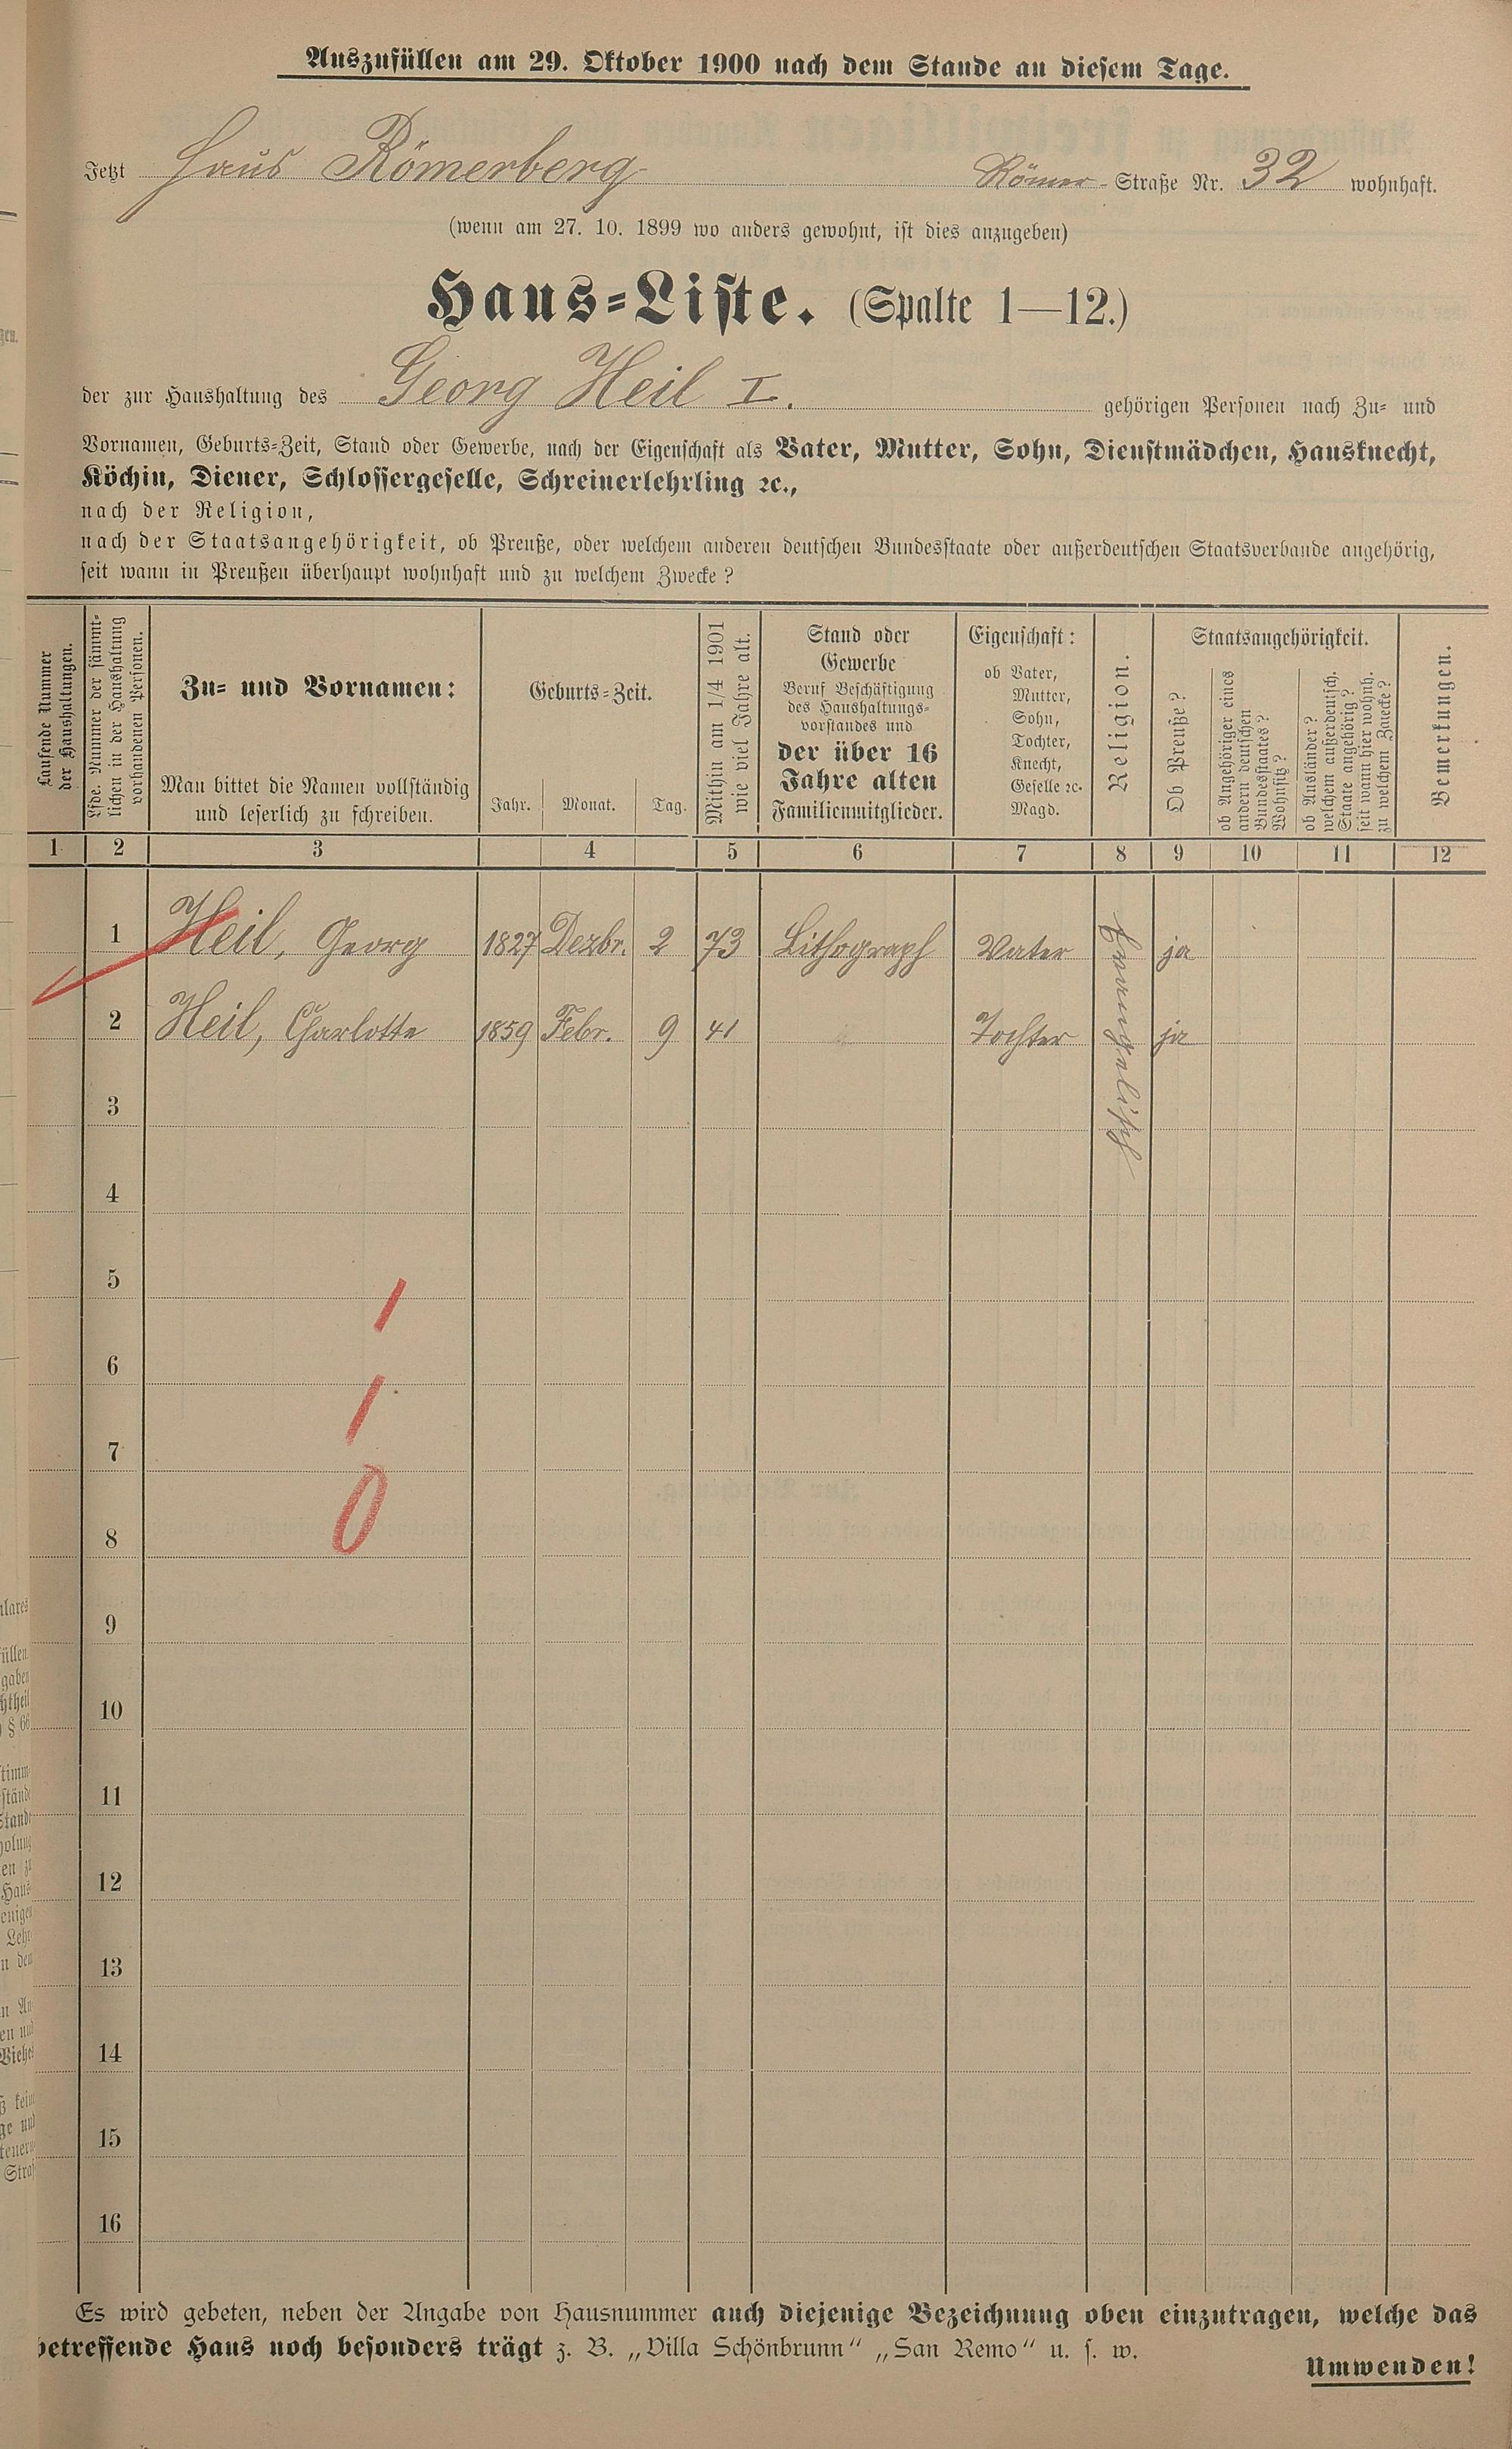 Auszufüllen am 29. Oktober 1900 nach dem Stande an diesem Tage.
Jetzt Haus Römerberg Römer-Straße Nr. 32 wohnhaft.
(wenn am 27. 10. 1899 wo anders gewohnt, ist dies anzugeben)
Haus-Liste. (Spalte 1—12.)
der zur Haushaltung des Georg Heil I. gehörigen Personen nach Zu- und
Vornamen, Geburts-Zeit, Stand oder Gewerbe, nach der Eigenschaft als Vater, Mutter, Sohn, Dienstmädchen, Hausknecht,
Köchin, Diener, Schlossergeselle, Schreinerlehrling ꝛc.,
nach der Religion,
nach der Staatsangehörigkeit, ob Preuße, oder welchem anderen deutschen Bundesstaate oder außerdeutschen Staatsverbande angehörig,
seit wann in Preußen überhaupt wohnhaft und zu welchem Zwecke?
Laufende Nummer
der Haushaltungen.
Lfde. Nummer der sämmt-
lichen in der Haushaltung
vorhandenen Personen.
Zu- und Vornamen:
Man bittet die Namen vollständig
und leserlich zu schreiben.
Geburts-Zeit.
Jahr. Monat. Tag.
Mithin am 1/4 1901
wie viel Jahre alt.
Stand oder
Gewerbe
Beruf Beschäftigung
des Haushaltungs-
vorstandes und
der über 16
Jahre alten
Familienmitglieder.
Eigenschaft:
ob Vater,
Mutter,
Sohn,
Tochter,
Knecht,
Geselle ꝛc.
Magd.
Religion.
Staatsangehörigkeit.
Ob Preuße?
ob Angehöriger eines
andern deutschen
Bundesstaates?
Wohnsitz?
ob Ausländer?
welchem außerdeutsch.
Staate angehörig?
seit wann hier wohnh.
zu welchem Zwecke?
Bemerkungen.
1 2 3 4 5 6 7 8 9 10 11 12
1 Heil, Georg 1827 Dezbr. 2 73 Lithograph Vater Evangelisch ja
2 Heil, Charlotte 1859 Febr. 9 41 Tochter ja
3
4
5
1
6
1
7
0
8
9
10
11
12
13
14
15
16
Es wird gebeten, neben der Angabe von Hausnummer auch diejenige Bezeichnung oben einzutragen, welche das
betreffende Haus noch besonders trägt z. B. „Villa Schönbrunn“ „San Remo“ u. s. w.
Umwenden!